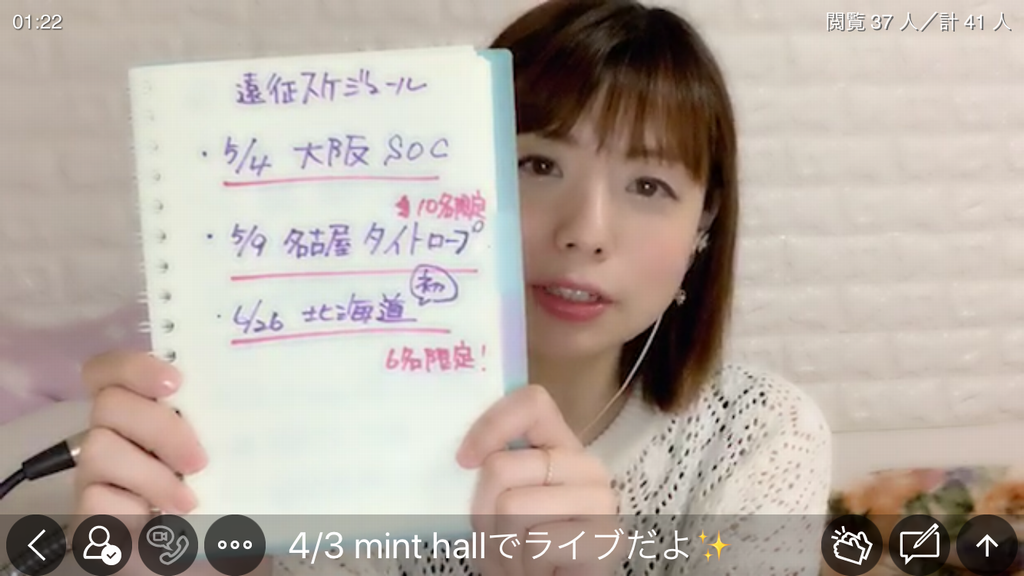 01:22
閲覧 37 人／計 41 人
遠征スケジュール
・5/4 大阪 SOC
10名限定
・5/9 名古屋 タイトロープ
初
・4/26 北海道
6名限定!
4/3 mint hallでライブだよ✨